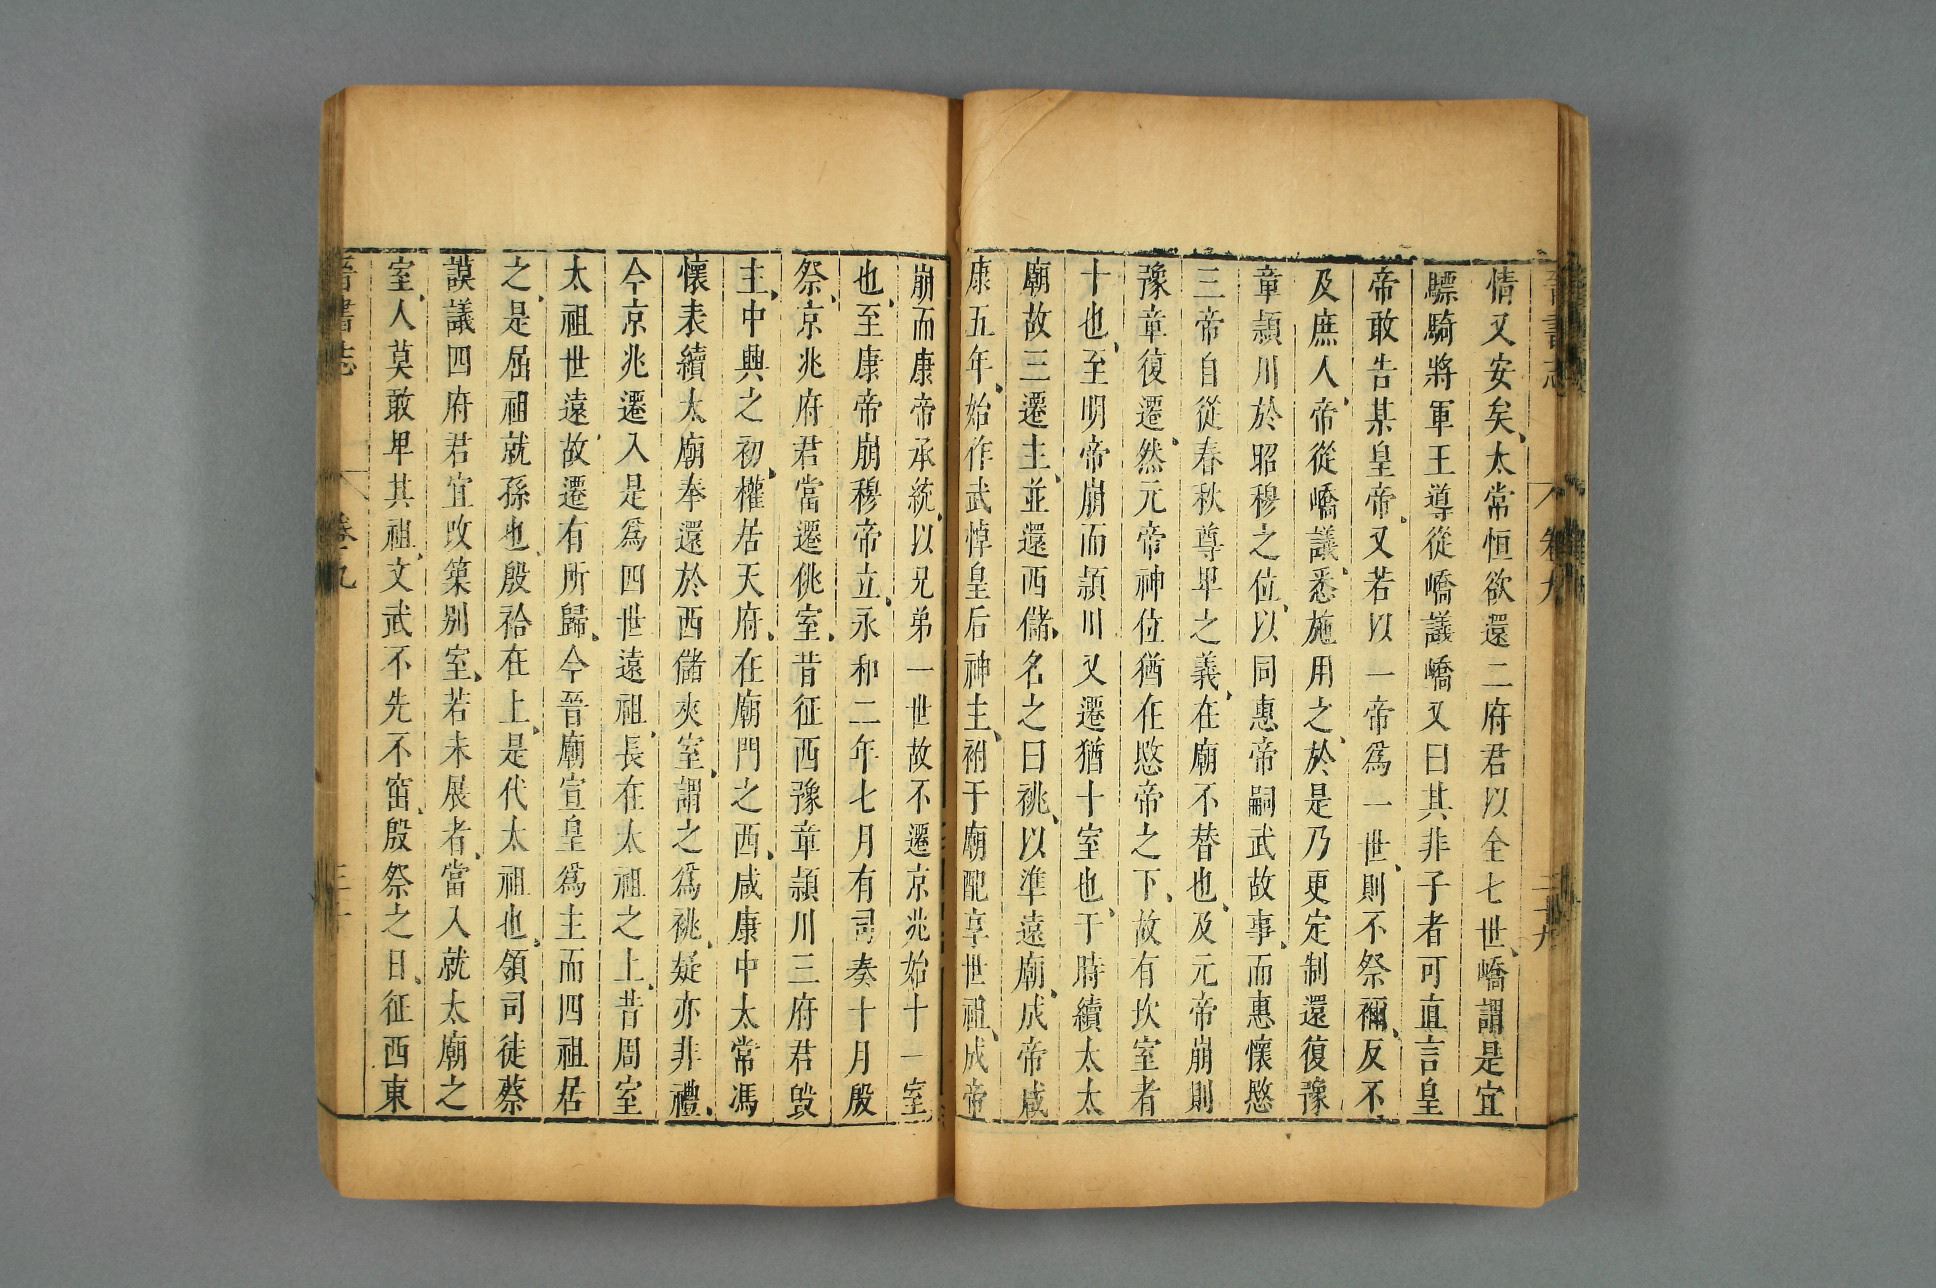 晉書志 卷九 二十九
情又安矣太常恒欲還二府君以全七世嶠謂是宜
驃騎將軍王導從嶠議嶠又曰其非子者可直言皇
帝敢告某皇帝又若以一帝爲一世則不祭禰反不
及庶人帝從嶠議悉施用之於是乃更定制還復豫
章潁川於昭穆之位以同惠帝嗣武故事而惠懷愍
三帝自從春秋尊卑之義在廟不替也及元帝崩則
豫章復遷然元帝神位猶在愍帝之下故有坎室者
十也至明帝崩而潁川又遷猶十室也于時續太太
廟故三遷主並還西儲名之曰祧以準遠廟成帝咸
康五年始作武悼皇后神主祔于廟配享世祖成帝
崩而康帝承統以兄弟一世故不遷京兆始十一室
也至康帝崩穆帝立永和二年七月有司奏十月殷
祭京兆府君當遷祧室昔征西豫章潁川三府君毀
主中興之初權居天府在廟門之西咸康中太常馮
懷表續太廟奉還於西儲夾室謂之爲祧疑亦非禮
今京兆遷入是爲四世遠祖長在太祖之上昔周室
太祖世遠故遷有所歸今晉廟宣皇爲主而四祖居
之是屈祖就孫也殷祫在上是代太祖也領司徒蔡
謨議四府君宜改築別室若未展者當入就太廟之
室人莫敢卑其祖文武不先不窋殷祭之日征西東
晉書志 卷九 三十